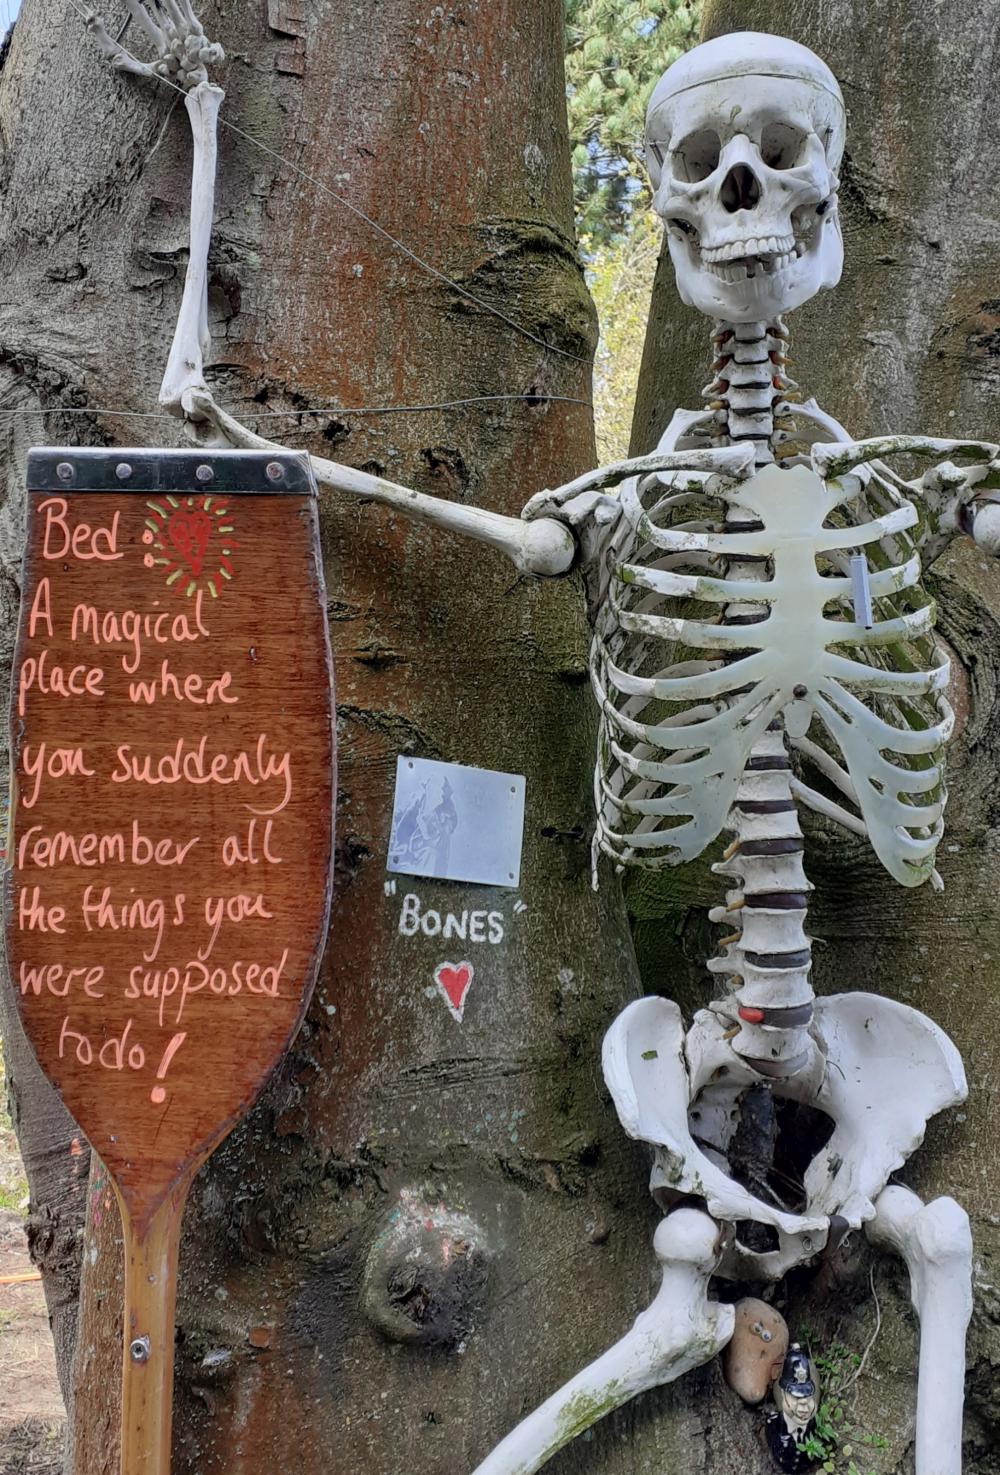 Bed :
A magical
place where
you suddenly
remember all
the things you
were supposed
to do!
"BONES"